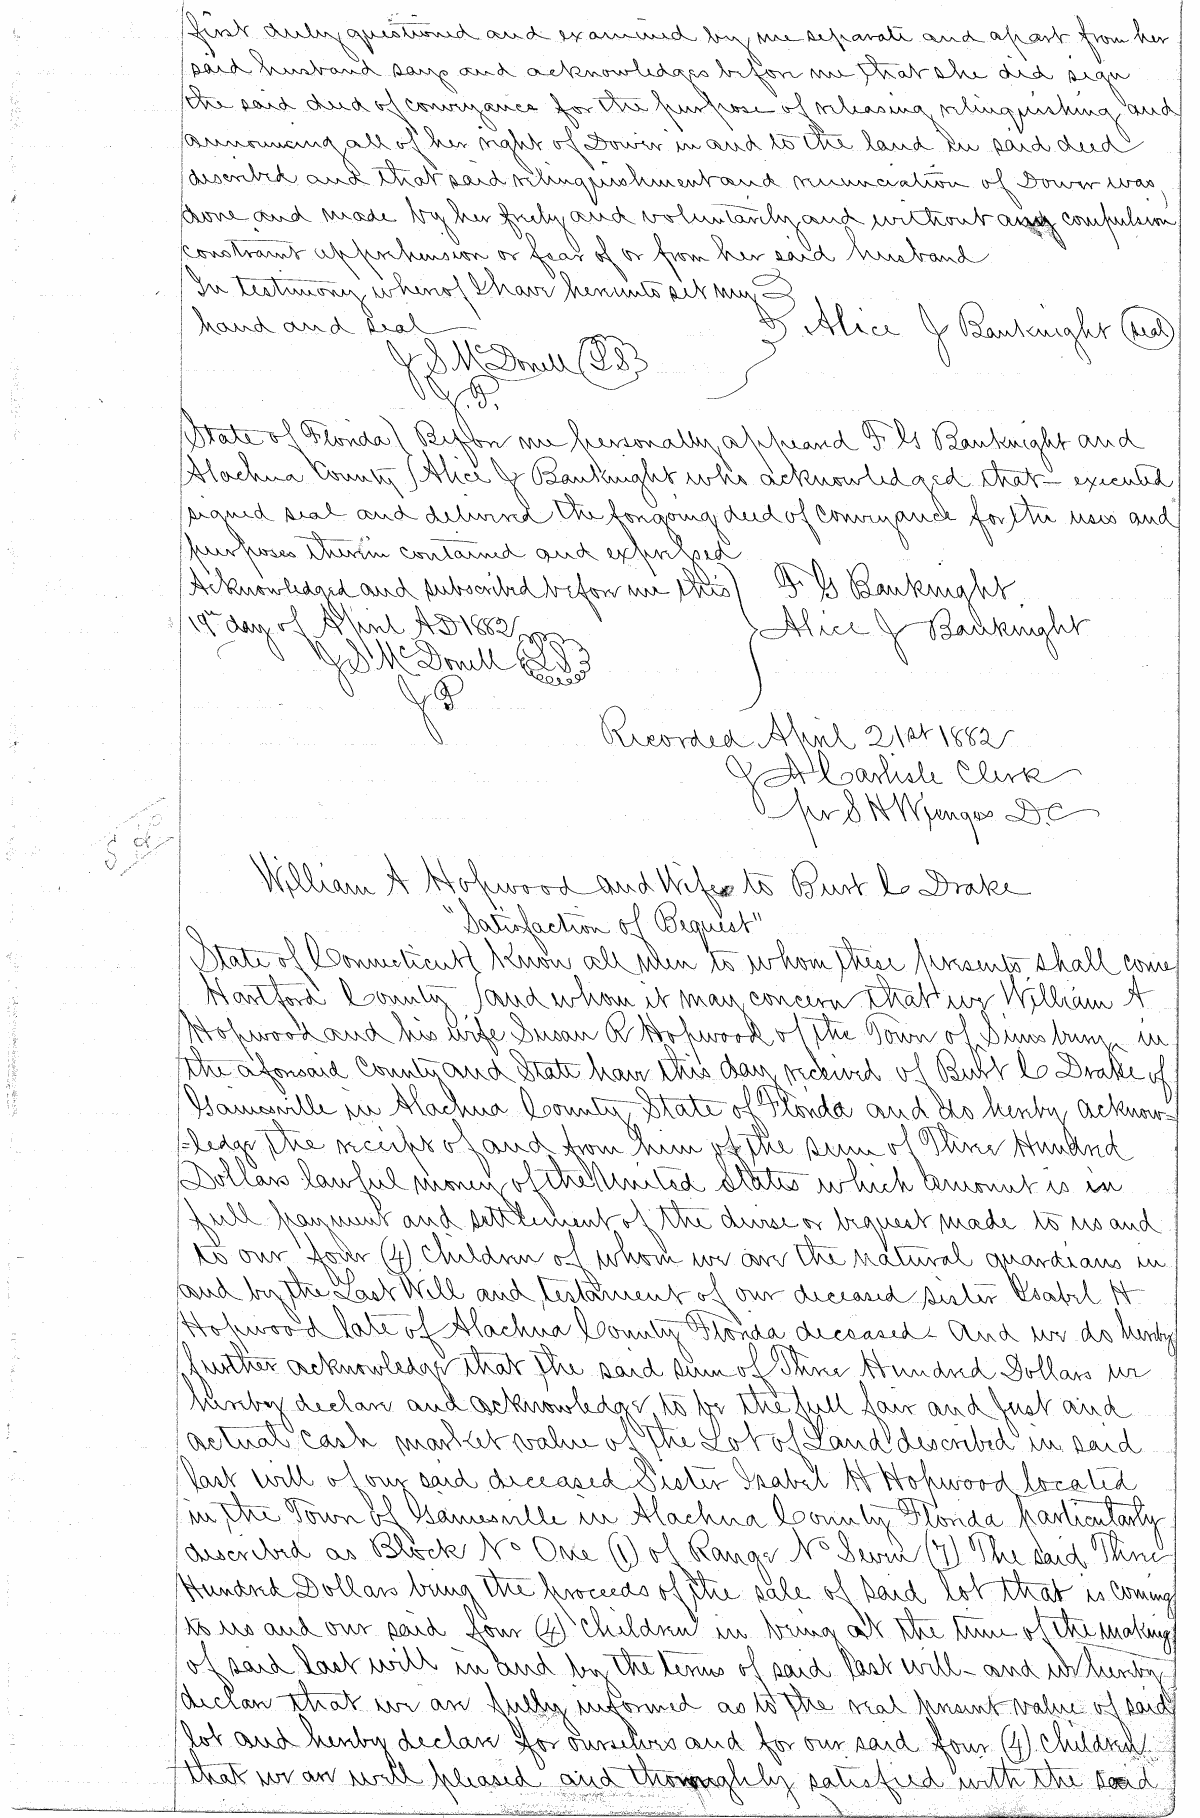 first duly questioned and examined by me separate and apart from her
said husband says and acknowledges before me that she did sign
the said deed of conveyance for the purpose of releasing relinquishing and
announcing all of her right of Dower in and to the land in said deed
described and that said relinquishment and renunciation of Dower was
done and made by her freely and voluntarily and without any compulsion
constraint apprehension or fear of or from her said husband
In testimony whereof I have hereunto set my
hand and seal Alice J Bauknight (seal)
J S McDonell (LS)
J.P.
State of Florida) Before me personally appeared F G Bauknight and
Alachua County) Alice J Bauknight who acknowledged that – executed
signed seal and delivered the foregoing deed of conveyance for the uses and
purposes therein contained and expressed
Acknowledged and subscribed before me this) F G Bauknight
19th day of April AD 1882 Alice J Bauknight
J S McDonell (LS)
J P
Recorded April 21st 1882
J A Carlisle Clerk
per S H D.C
William A Hopwood and Wife to Burt C Drake
"Satisfaction of Bequest"
State of Connecticut) Know all Men to whom these presents shall come
Hartford County ) and whom it may concern that we William A
Hopwood and his wife Susan R Hopwood of the Town of Simsbury in
the aforesaid County and State have this day received of Burt C Drake of
Gainesville in Alachua County State of Florida and do hereby acknow=
=ledge the receipt of and from him of the sum of Three Hundred
Dollars lawful money of the United States which amount is in
full payment and settlement of the devise or bequest made to us and
to our four (4) children of whom we are the natural guardians in
and by the Last Will and testament of our deceased sister Isabel H
Hopwood late of Alachua County Florida deceased – And we do hereby
further acknowledge that the said sum of Three Hundred Dollars we
hereby declare and acknowledge to be the full fair and just and
actual cash market value of the Lot of Land described in said
last will of our said deceased Sister Isabel H Hopwood located
in the Town of Gainesville in Alachua County Florida particularly
described as Block No One (1) of Range No Seven (7) The said Three
Hundred Dollars being the proceeds of the sale of said lot that is coming
to us and our said four (4) children in being at the time of the making
of said last will in and by the terms of said last will – and we hereby
declare that we are fully informed as to the real present value of said
lot and hereby declare for ourselves and for our said four (4) children
that we are well pleased and thoroughly satisfied with the said